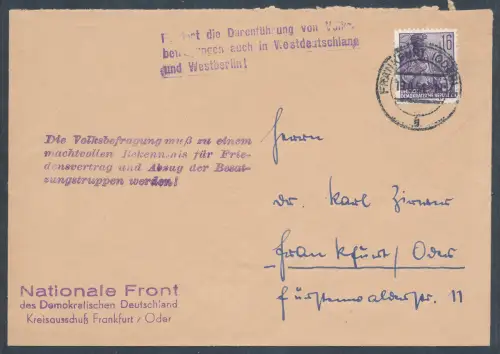 die Durchführung von Volks-
auch in Westdeutschland
und Westberlin!
16
DEUTSCHE
DEMOKRATISCHE REPUBLIK
Die Volksbefragung muß zu einem
machtvollen Bekenntnis für Frie-
densvertrag und Abzug der Besat-
zungstruppen werden!
Herrn
Dr. Karl
Frankfurt/Oder
Fürstenwalderstr. 11
Nationale Front
des Demokratischen Deutschland
Kreisausschuß Frankfurt / Oder